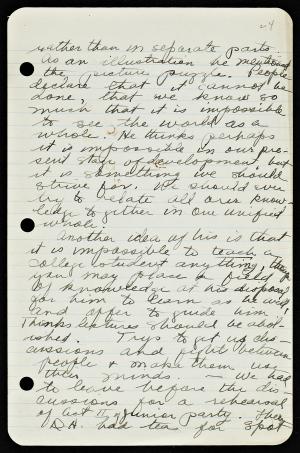 24
rather than in separate parts.
As an illustration he mentioned
the picture puzzle. People
declare that it cannot be
done, that we know so
much that it is impossible
to see the world as a
whole. He thinks perhaps
it is impossible in our pre-
sent stage of development, but
it is something we should
strive for. We should ever
try to relate all ones know-
ledge together in one unified
whole.
Another idea of his is that
it is impossible to teach a
college student anything, though
you may place a field
of knowledge at his disposal
for him to learn as he will,
and offer to guide him.
Thinks lectures should be abol-
ished. Trys to get up dis-
cussions and fight between
people & make them use
their minds. — We had
to leave before the dis-
cussions for a rehearsal
of act II of Junior party. Then
D.H. had tea for Spot